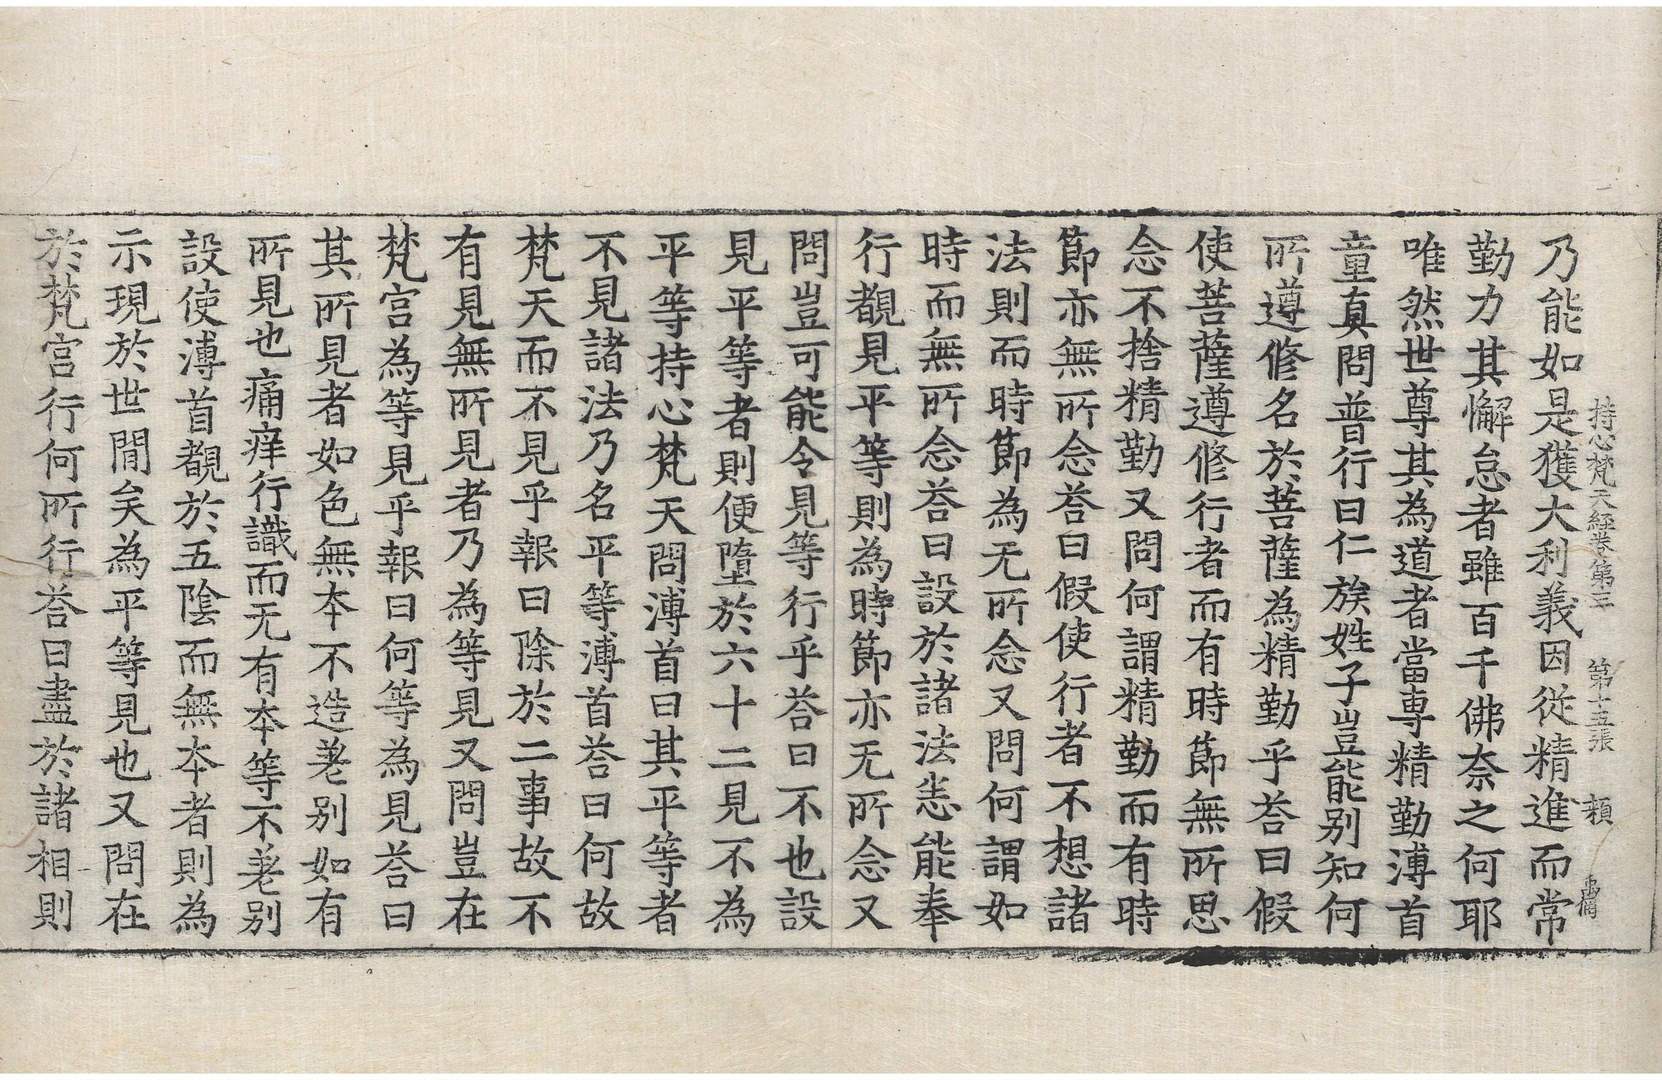 持心梵天經卷第三 第十五張 頛
乃能如是獲大利義因從精進而常
勤力其懈怠者雖百千佛奈之何耶
唯然世尊其為道者當專精勤溥首
童真問普行曰仁族姓子豈能別知何
所遵修名於菩薩為精勤乎荅曰假
使菩薩遵修行者而有時節無所思
念不捨精勤又問何謂精勤而有時
節亦無所念荅曰假使行者不想諸
法則而時節為无所念又問何謂如
時而無所念荅曰設於諸法恚能奉
行覩見平等則為時節亦无所念又
問豈可能令見等行乎荅曰不也設
見平等者則便墮於六十二見不為
平等持心梵天問溥首曰其平等者
不見諸法乃名平等溥首荅曰何故
梵天而不見乎報曰除於二事故不
有見無所見者乃為等見又問豈在
梵宫為等見乎報曰何等為見荅曰
其所見者如色無夲不造差別如有
所見也痛痒行識而无有夲等不差別
設使溥首覩於五隂而無夲者則為
示現於世閒矣為平等見也又問在
於梵宫行何所行荅曰盡於諸相則